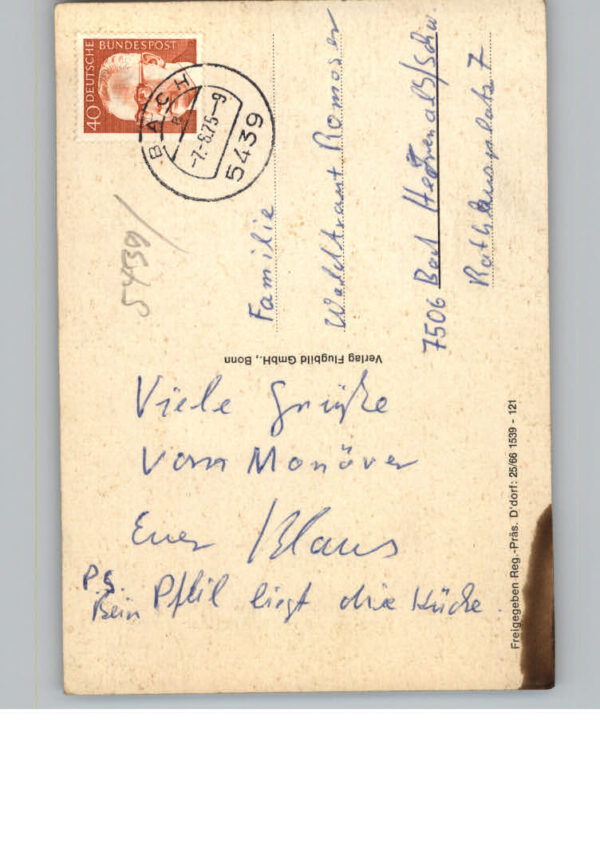 DEUTSCHE
BUNDESPOST
40
BACH
-7.-6.75--9
5439
5439/
Familie
Waldtraut Romoser
7506 Bad Herrenalb/Schw.
Rathausplatz 7
Verlag Flugbild GmbH., Bonn
Viele Grüße
vom Manöver
Euer Klaus
P.S.
Beim Pfeil liegt die Küche.
Freigegeben Reg.-Präs. D'dorf: 25/66 1539 - 121